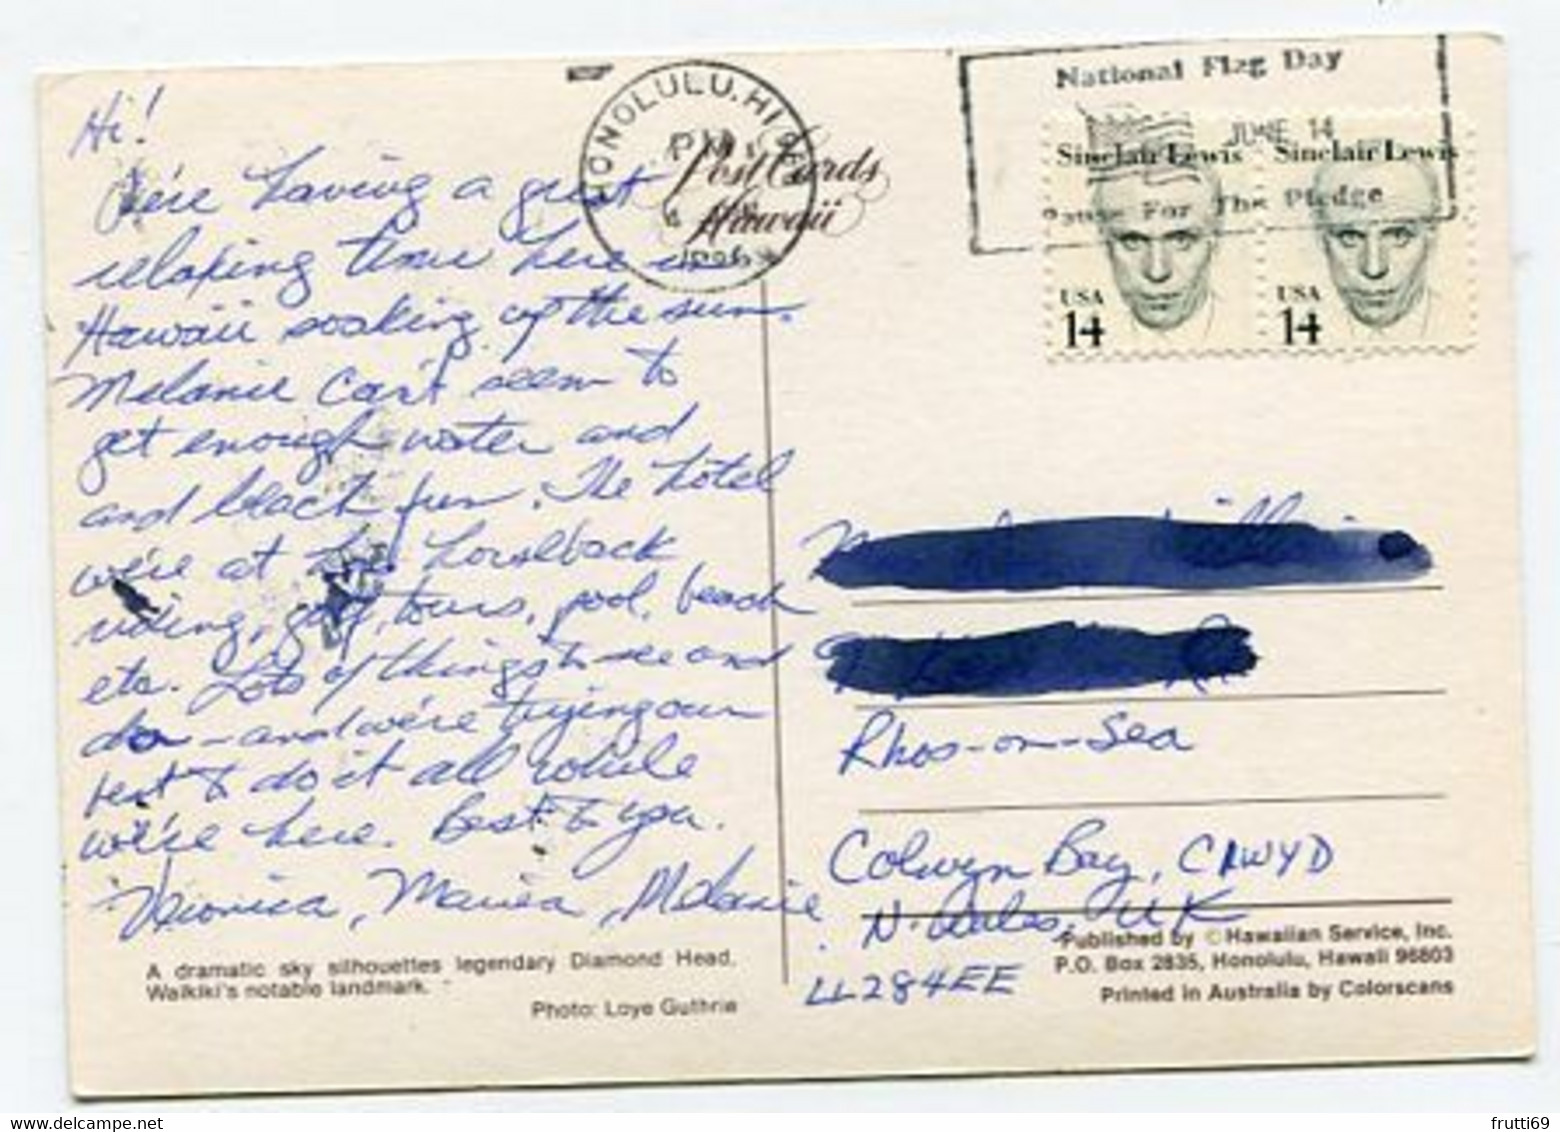 Hi!
We're having a great
relaxing time here in
Hawaii soaking up the sun.
Melanie can't seem to
get enough water and
and beach fun. The hotel
we're at has horseback
riding, golf, tours, pool, beach
etc. Lots of things to see and
do - and we're trying our
best to do it all while
we're here. Best to you.
Veronica, Marisa, Melanie
A dramatic sky silhouettes legendary Diamond Head,
Waikiki's notable landmark.
Photo: Loye Guthrie
HONOLULU, HI
PM
1986
Post Cards
Hawaii
National Flag Day
JUNE 14
Pause For The Pledge
Sinclair Lewis Sinclair Lewis
USA USA
14 14
Rhos-on-Sea
Colwyn Bay, CLWYD
N. Wales, UK
LL284EE
Published by © Hawaiian Service, Inc.
P.O. Box 2835, Honolulu, Hawaii 96803
Printed in Australia by Colorscans
frutti69